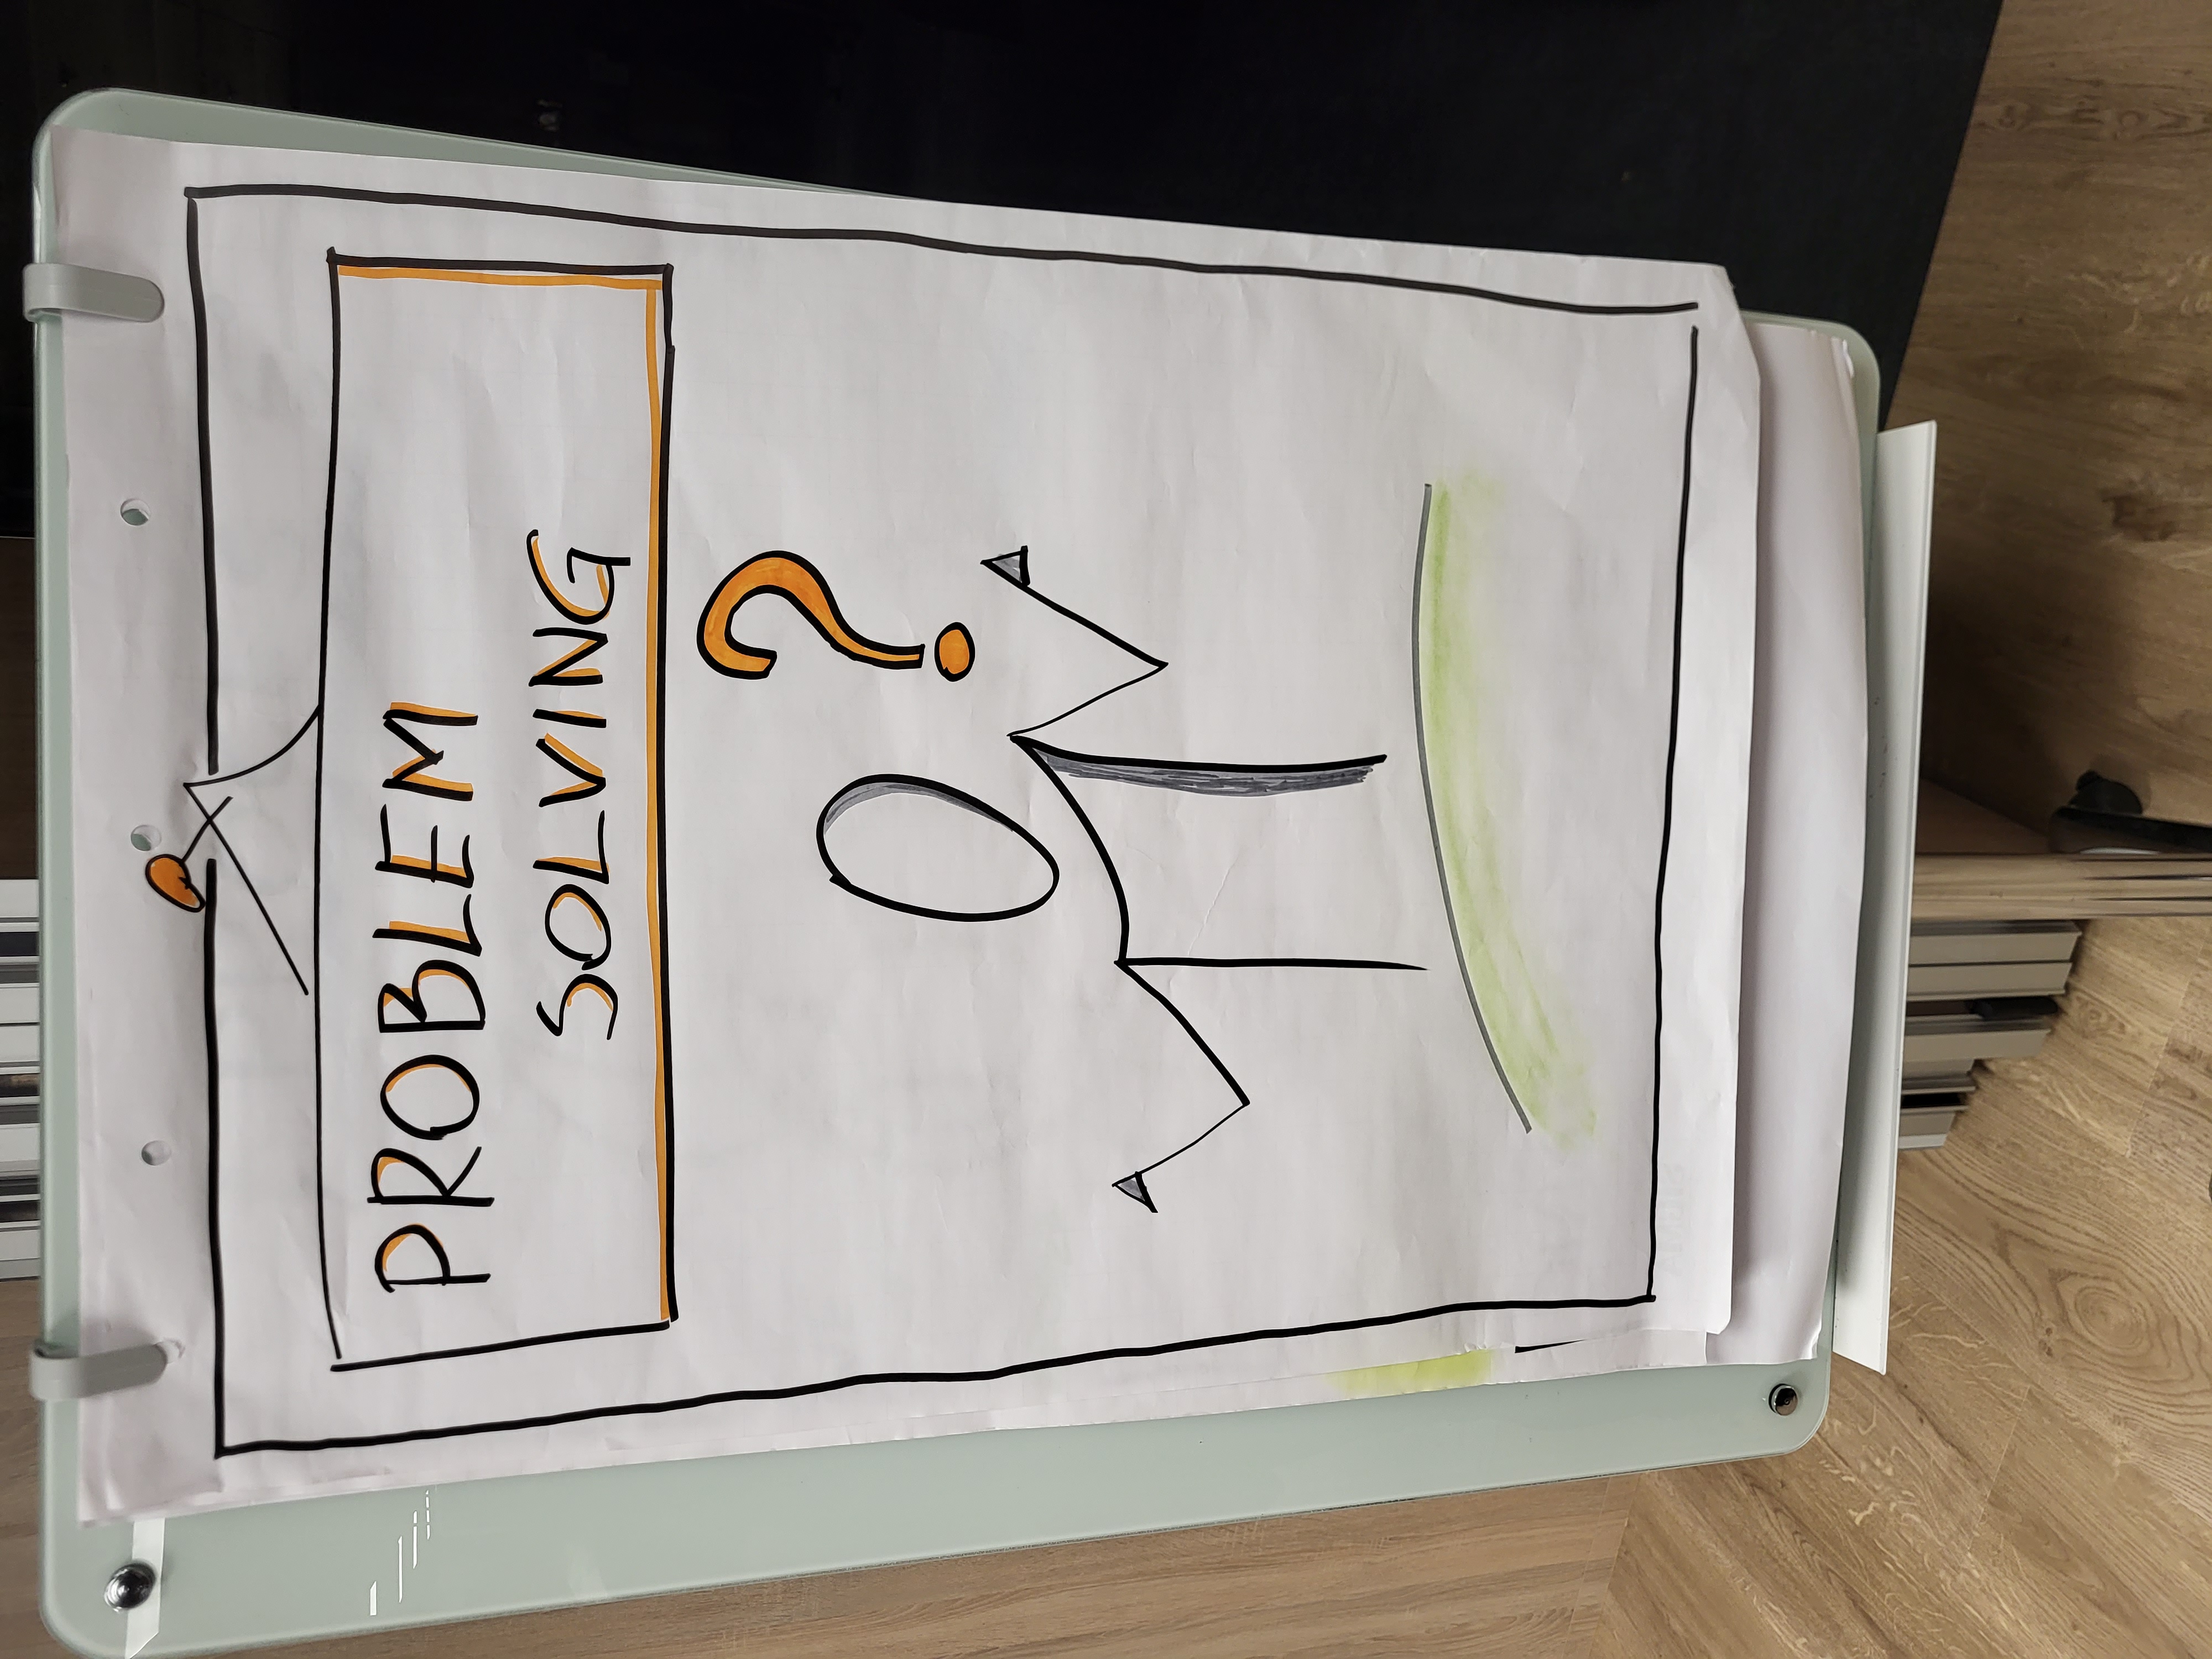 PROBLEM
SOLVING
?